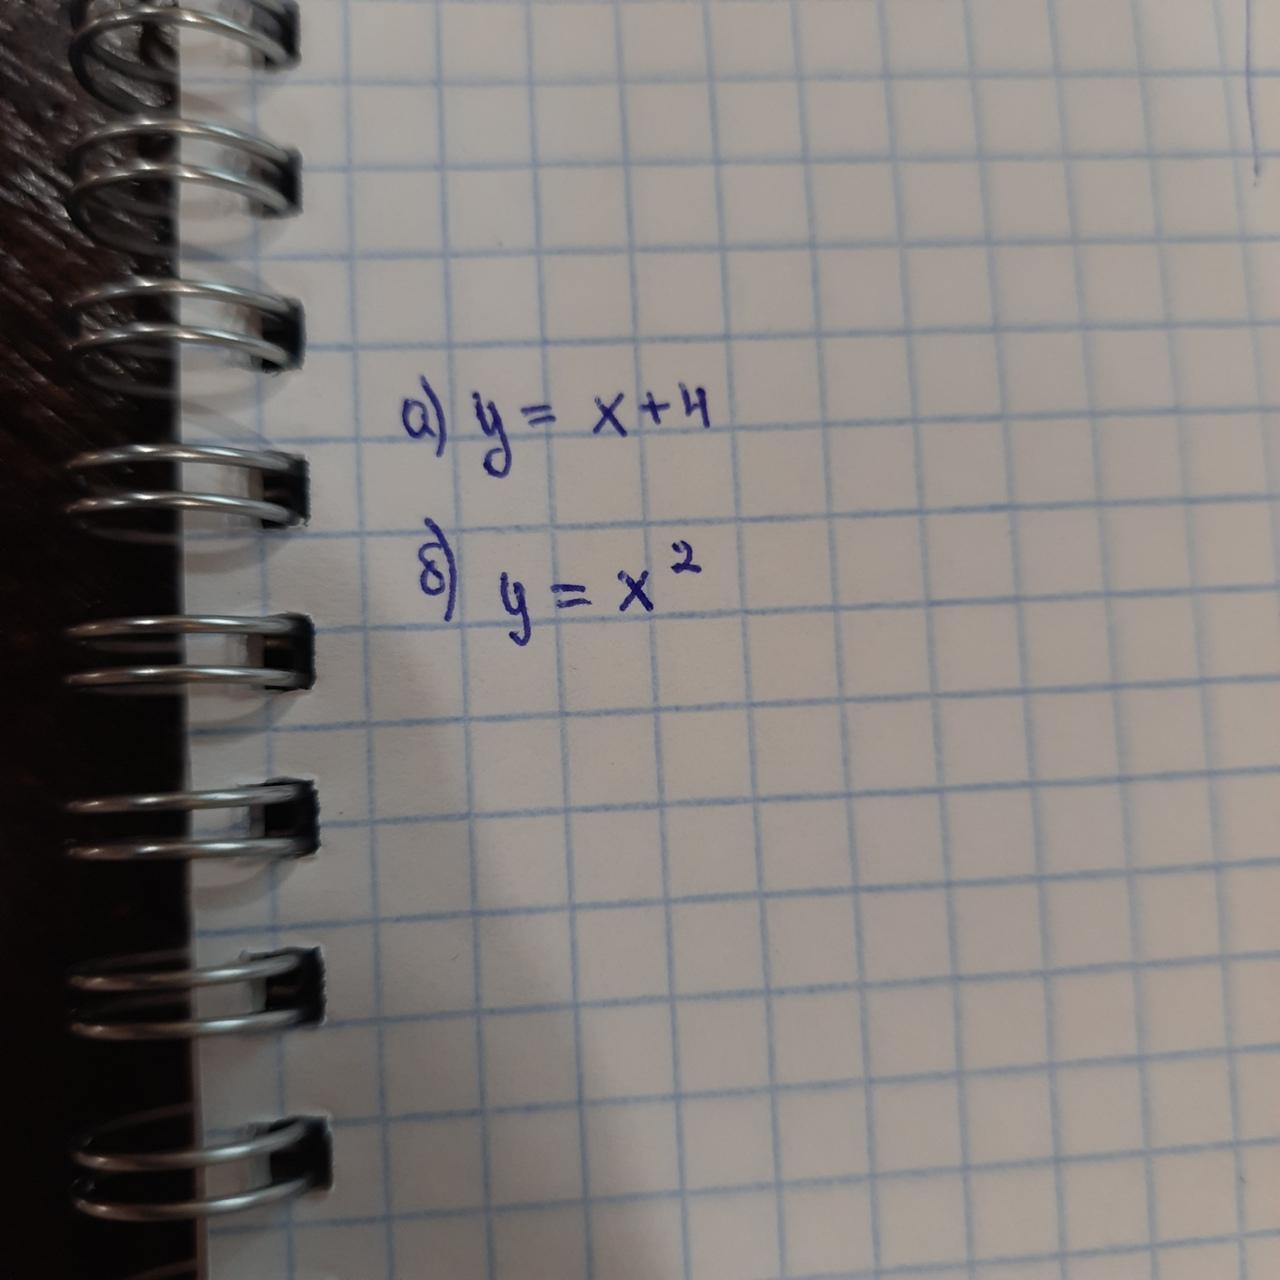 а) y = x+4
б) y = x²